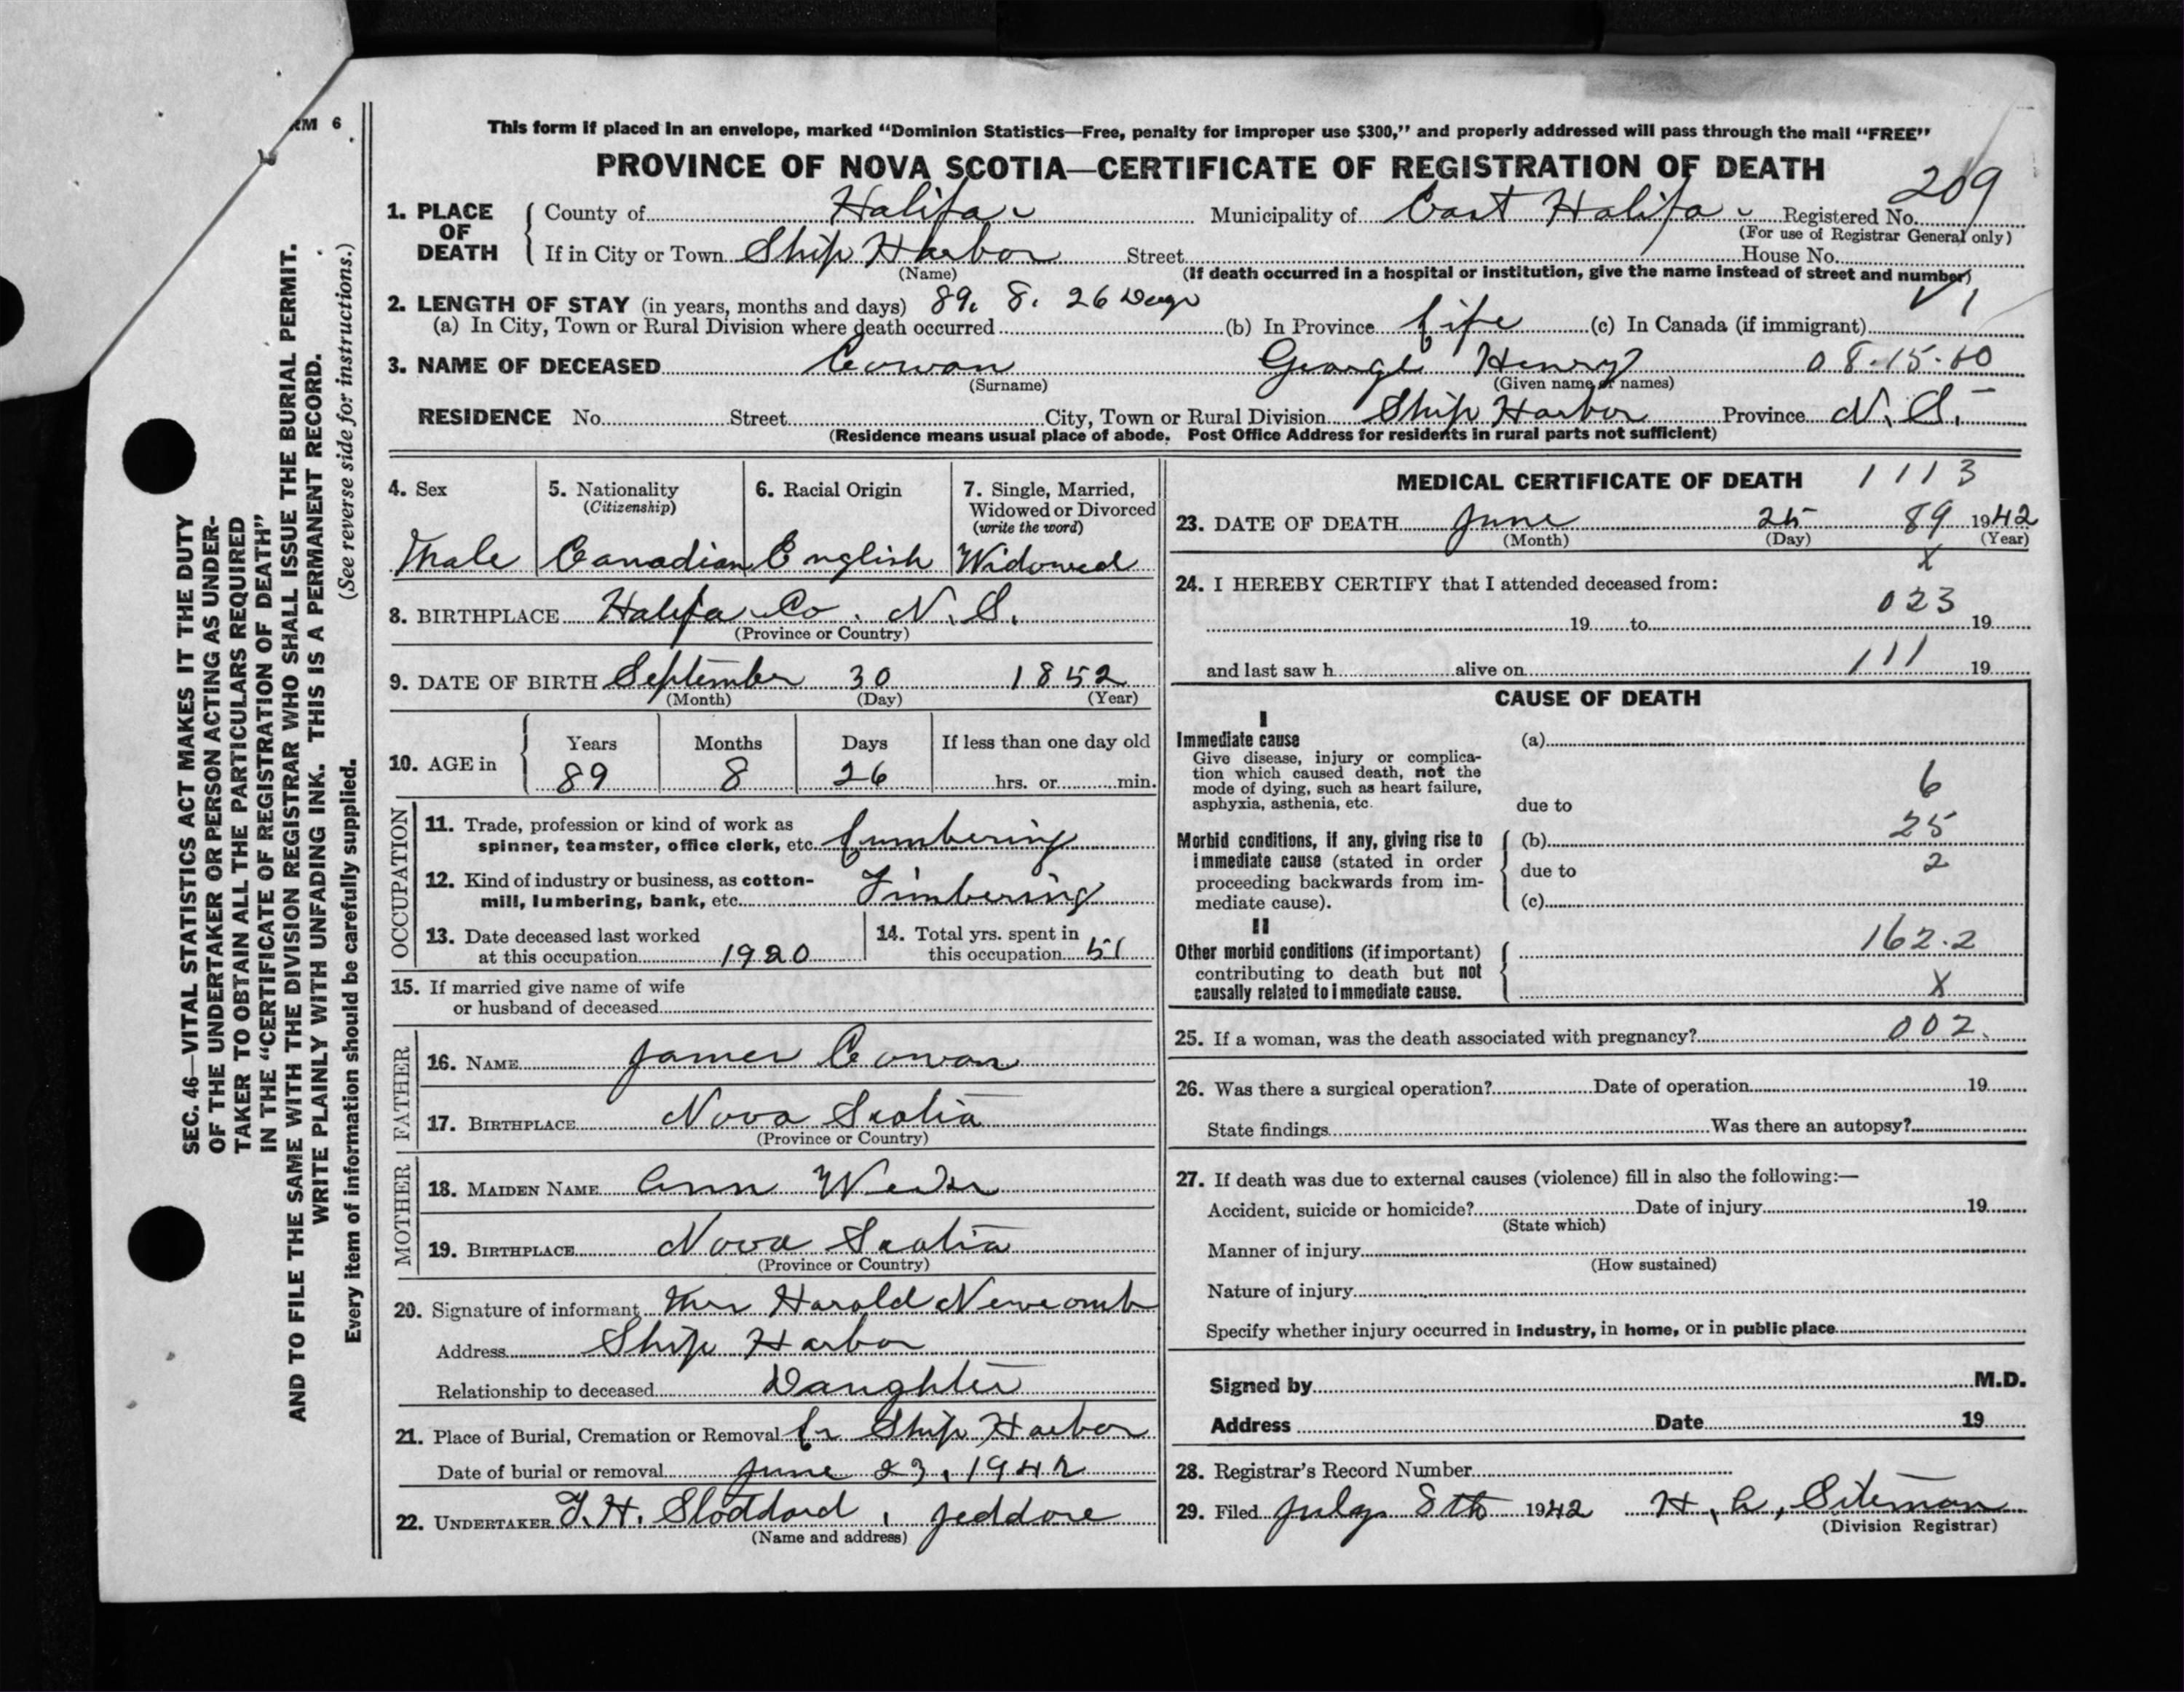 RM 6
This form if placed in an envelope, marked "Dominion Statistics—Free, penalty for improper use $300," and properly addressed will pass through the mail "FREE"
PROVINCE OF NOVA SCOTIA—CERTIFICATE OF REGISTRATION OF DEATH
209
1. PLACE OF DEATH County of Halifax Municipality of East Halifax Registered No.
(For use of Registrar General only)
If in City or Town Ship Harbor Street House No.
(Name) (If death occurred in a hospital or institution, give the name instead of street and number)
2. LENGTH OF STAY (in years, months and days) 89. 8. 26 Days
(a) In City, Town or Rural Division where death occurred (b) In Province life (c) In Canada (if immigrant)
3. NAME OF DECEASED Cowan George Henry 08-15-60
(Surname) (Given name or names)
RESIDENCE No. Street City, Town or Rural Division Ship Harbor Province N.S.
(Residence means usual place of abode. Post Office Address for residents in rural parts not sufficient)
4. Sex 5. Nationality (Citizenship) 6. Racial Origin 7. Single, Married, Widowed or Divorced (write the word)
Male Canadian English Widowed
8. BIRTHPLACE Halifax Co. N.S.
(Province or Country)
9. DATE OF BIRTH September 30 1852
(Month) (Day) (Year)
10. AGE in Years Months Days If less than one day old
89 8 26 hrs. or min.
OCCUPATION
11. Trade, profession or kind of work as
spinner, teamster, office clerk, etc. Lumbering
12. Kind of industry or business, as cotton-
mill, lumbering, bank, etc. Timbering
13. Date deceased last worked
at this occupation 1920
14. Total yrs. spent in
this occupation 51
15. If married give name of wife
or husband of deceased
FATHER
16. NAME James Cowan
17. BIRTHPLACE Nova Scotia
(Province or Country)
MOTHER
18. MAIDEN NAME Ann
19. BIRTHPLACE Nova Scotia
(Province or Country)
20. Signature of informant Mrs Harold Newcomb
Address Ship Harbor
Relationship to deceased Daughter
21. Place of Burial, Cremation or Removal Ship Harbor
Date of burial or removal June 1942
22. UNDERTAKER Stoddard, Jeddore
(Name and address)
MEDICAL CERTIFICATE OF DEATH 1113
23. DATE OF DEATH June 25 89 1942
(Month) (Day) (Year)
X
24. I HEREBY CERTIFY that I attended deceased from:
023
19 to 19
and last saw h alive on 111 19
CAUSE OF DEATH
I
Immediate cause (a)
Give disease, injury or complica-
tion which caused death, not the
mode of dying, such as heart failure,
asphyxia, asthenia, etc. due to
6
25
Morbid conditions, if any, giving rise to (b)
immediate cause (stated in order
proceeding backwards from im- due to 2
mediate cause). (c)
II
162.2
Other morbid conditions (if important)
contributing to death but not
causally related to immediate cause. X
25. If a woman, was the death associated with pregnancy? 002.
26. Was there a surgical operation? Date of operation 19
State findings Was there an autopsy?
27. If death was due to external causes (violence) fill in also the following:—
Accident, suicide or homicide? Date of injury 19
(State which)
Manner of injury
(How sustained)
Nature of injury
Specify whether injury occurred in industry, in home, or in public place
Signed by M.D.
Address Date 19
28. Registrar's Record Number
29. Filed July 8th 1942 Siteman
(Division Registrar)
SEC. 46—VITAL STATISTICS ACT MAKES IT THE DUTY
OF THE UNDERTAKER OR PERSON ACTING AS UNDER-
TAKER TO OBTAIN ALL THE PARTICULARS REQUIRED
IN THE "CERTIFICATE OF REGISTRATION OF DEATH"
AND TO FILE THE SAME WITH THE DIVISION REGISTRAR WHO SHALL ISSUE THE BURIAL PERMIT.
WRITE PLAINLY WITH UNFADING INK. THIS IS A PERMANENT RECORD.
Every item of information should be carefully supplied. (See reverse side for instructions.)